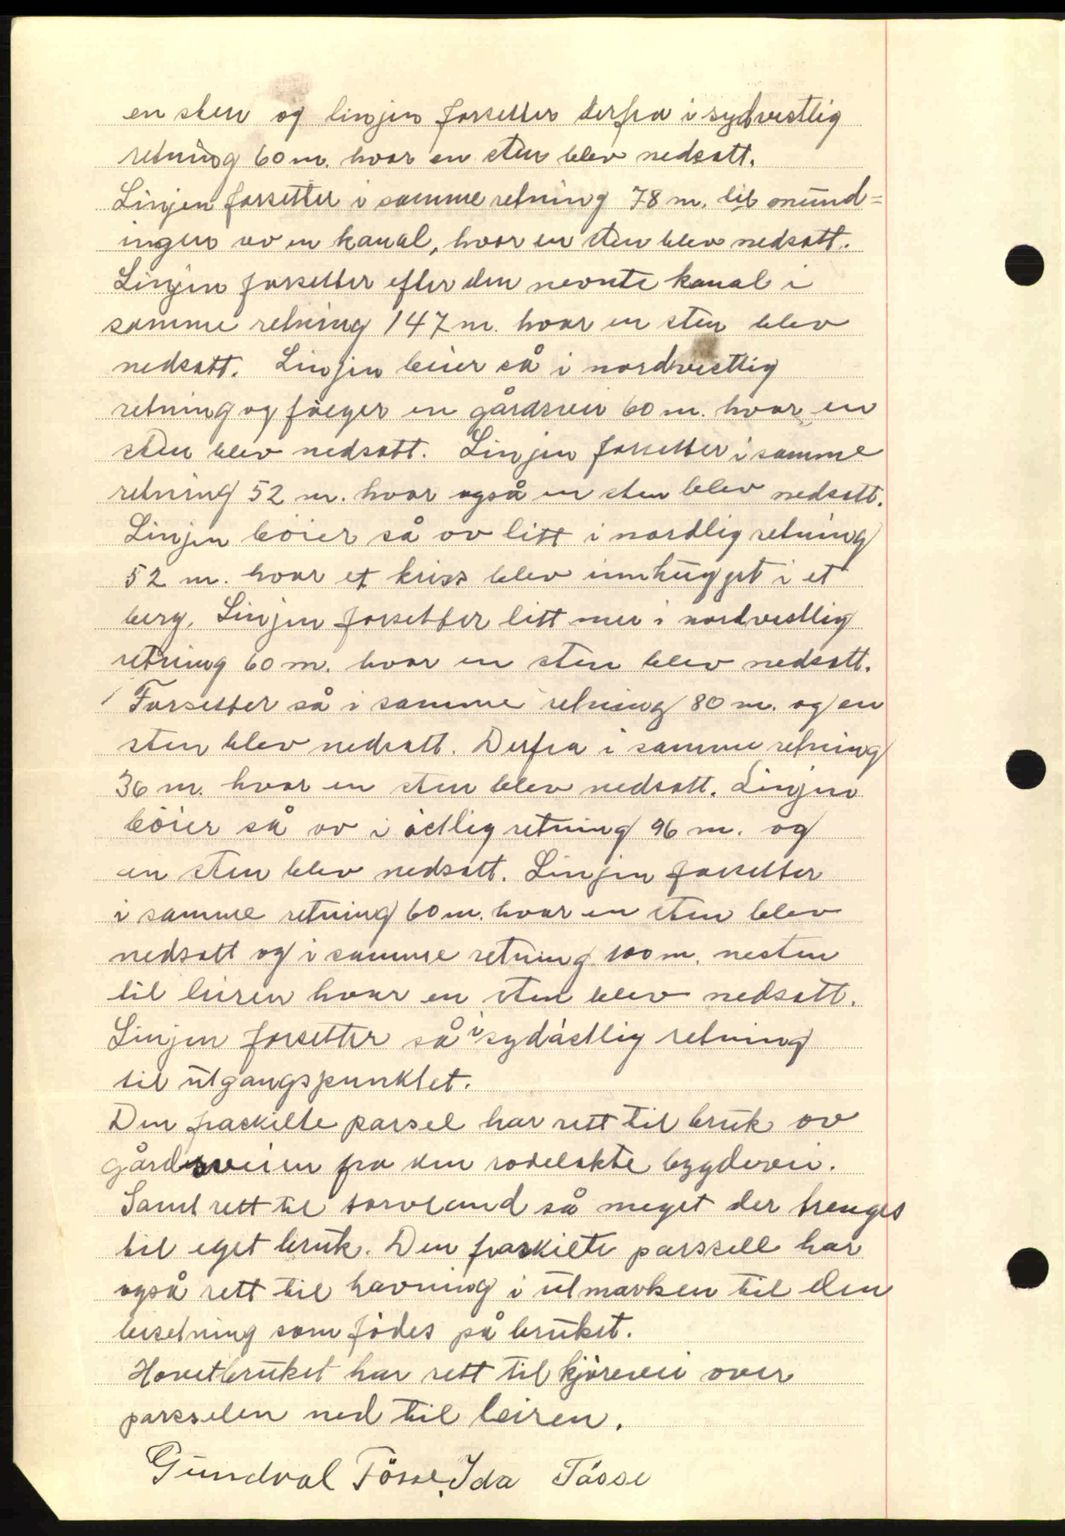 en sten og linjen forsetter derfra i sydvestlig
retning 60 m. hvor en sten blev nedsatt.
Linjen forsetter i samme retning 78 m. til mund=
ingen av en kanal, hvor en sten blev nedsatt.
Linjen forsetter efter den nevnte kanal i
samme retning 147 m. hvor en sten blev
nedsatt. Linjen böier så i nordvestlig
retning og fölger en gårdsvei 60 m. hvor en
sten blev nedsatt. Linjen forsetter i samme
retning 52 m. hvor også en sten blev nedsatt.
Linjen böier så av litt i nordlig retning
52 m. hvor et kriss blev innhugget i et
berg. Linjen forsetter litt mer i nordvestlig
retning 60 m. hvor en sten blev nedsatt.
Forsetter så i samme retning 80 m. og en
sten blev nedsatt. Derfra i samme retning
36 m. hvor en sten blev nedsatt. Linjen
böier så av i östlig retning 96 m. og
en sten blev nedsatt. Linjen forsetter
i samme retning 60 m. hvor en sten blev
nedsatt og i samme retning 100 m. nesten
til leiren hvor en sten blev nedsatt.
Linjen forsetter så i sydöstlig retning
til utgangspunktet.
Den fraskilte parsel har rett til bruk av
gårdsveien fra den rodelakte bygdevei.
Samt rett til torvland så meget der trenges
til eget bruk. Den fraskilte parssell har
også rett til havning i utmarken til den
besetning som födes på bruket.
Hovetbruket har rett til kjörevei over
parsselen ned til leiren.
Gundval Tösse, Ida Tösse